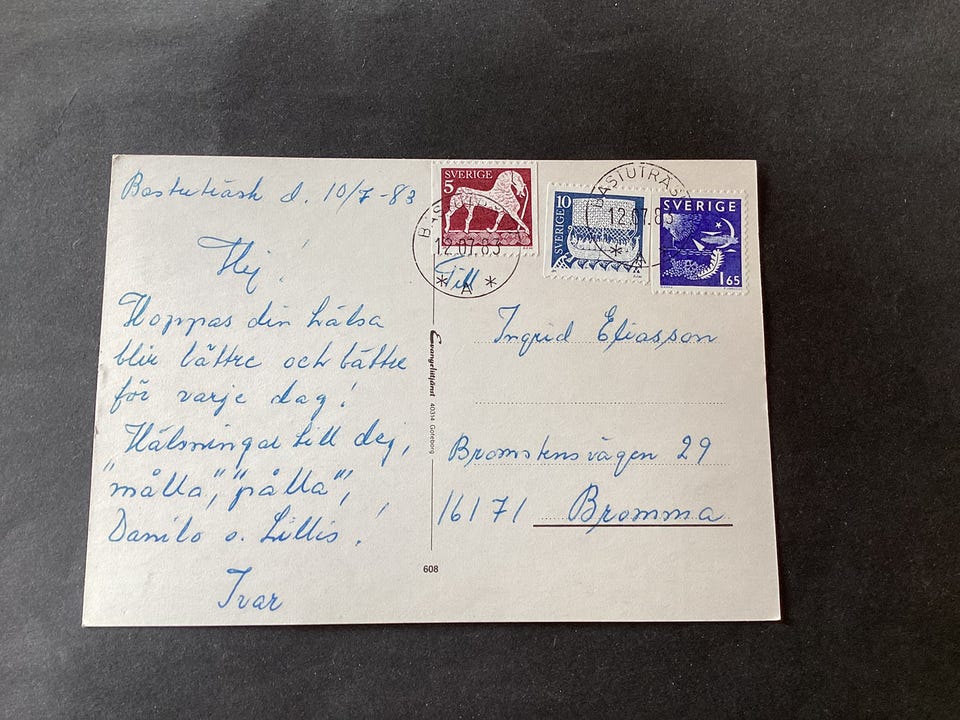 Bastuträsk d. 10/7-83
Hej!
Hoppas din hälsa
blir bättre och bättre
för varje dag!
Hälsningar till dej,
"målla", "pålla",
Danilo o. Lillis!
Ivar
SVERIGE
5
BASTUTRÄSK
12.07.83
* A *
SVERIGE
10
BASTUTRÄSK
12.07.83
* A
SVERIGE
1.65
Till
Ingrid Eliasson
Bromstensvägen 29
16171 Bromma
Evangelietjänst 40314 Göteborg
608